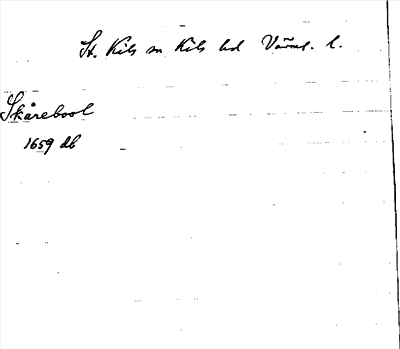 St. Kils sn Kils hd Värml. l.
Skårebool
1659 db